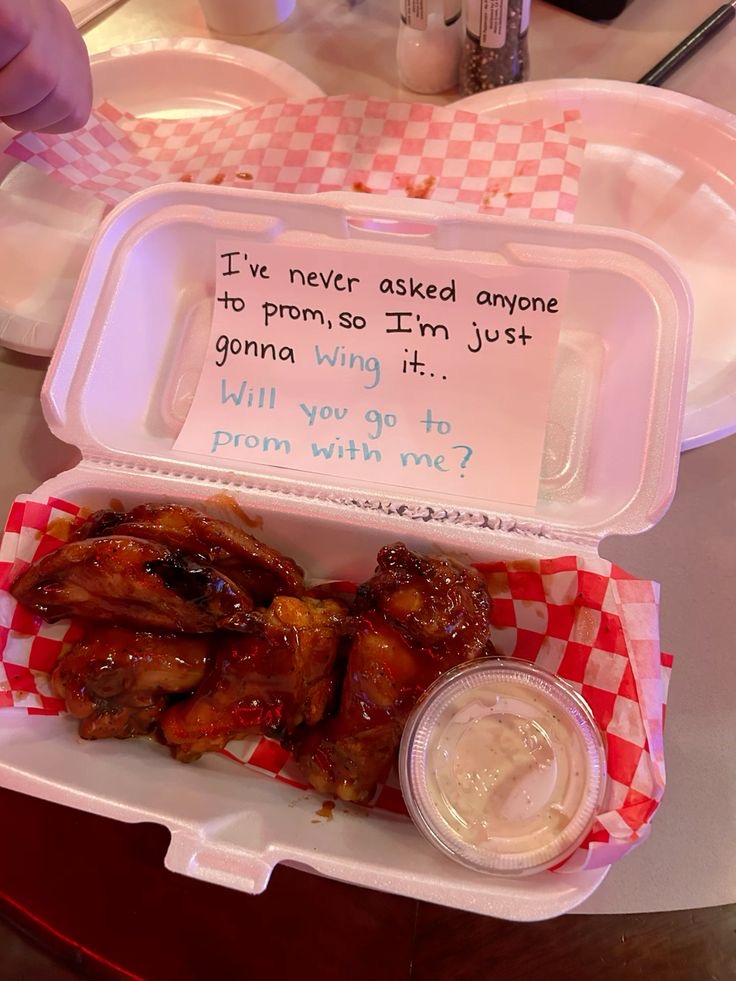 I've never asked anyone
to prom, so I'm just
gonna Wing it...
Will you go to
prom with me?